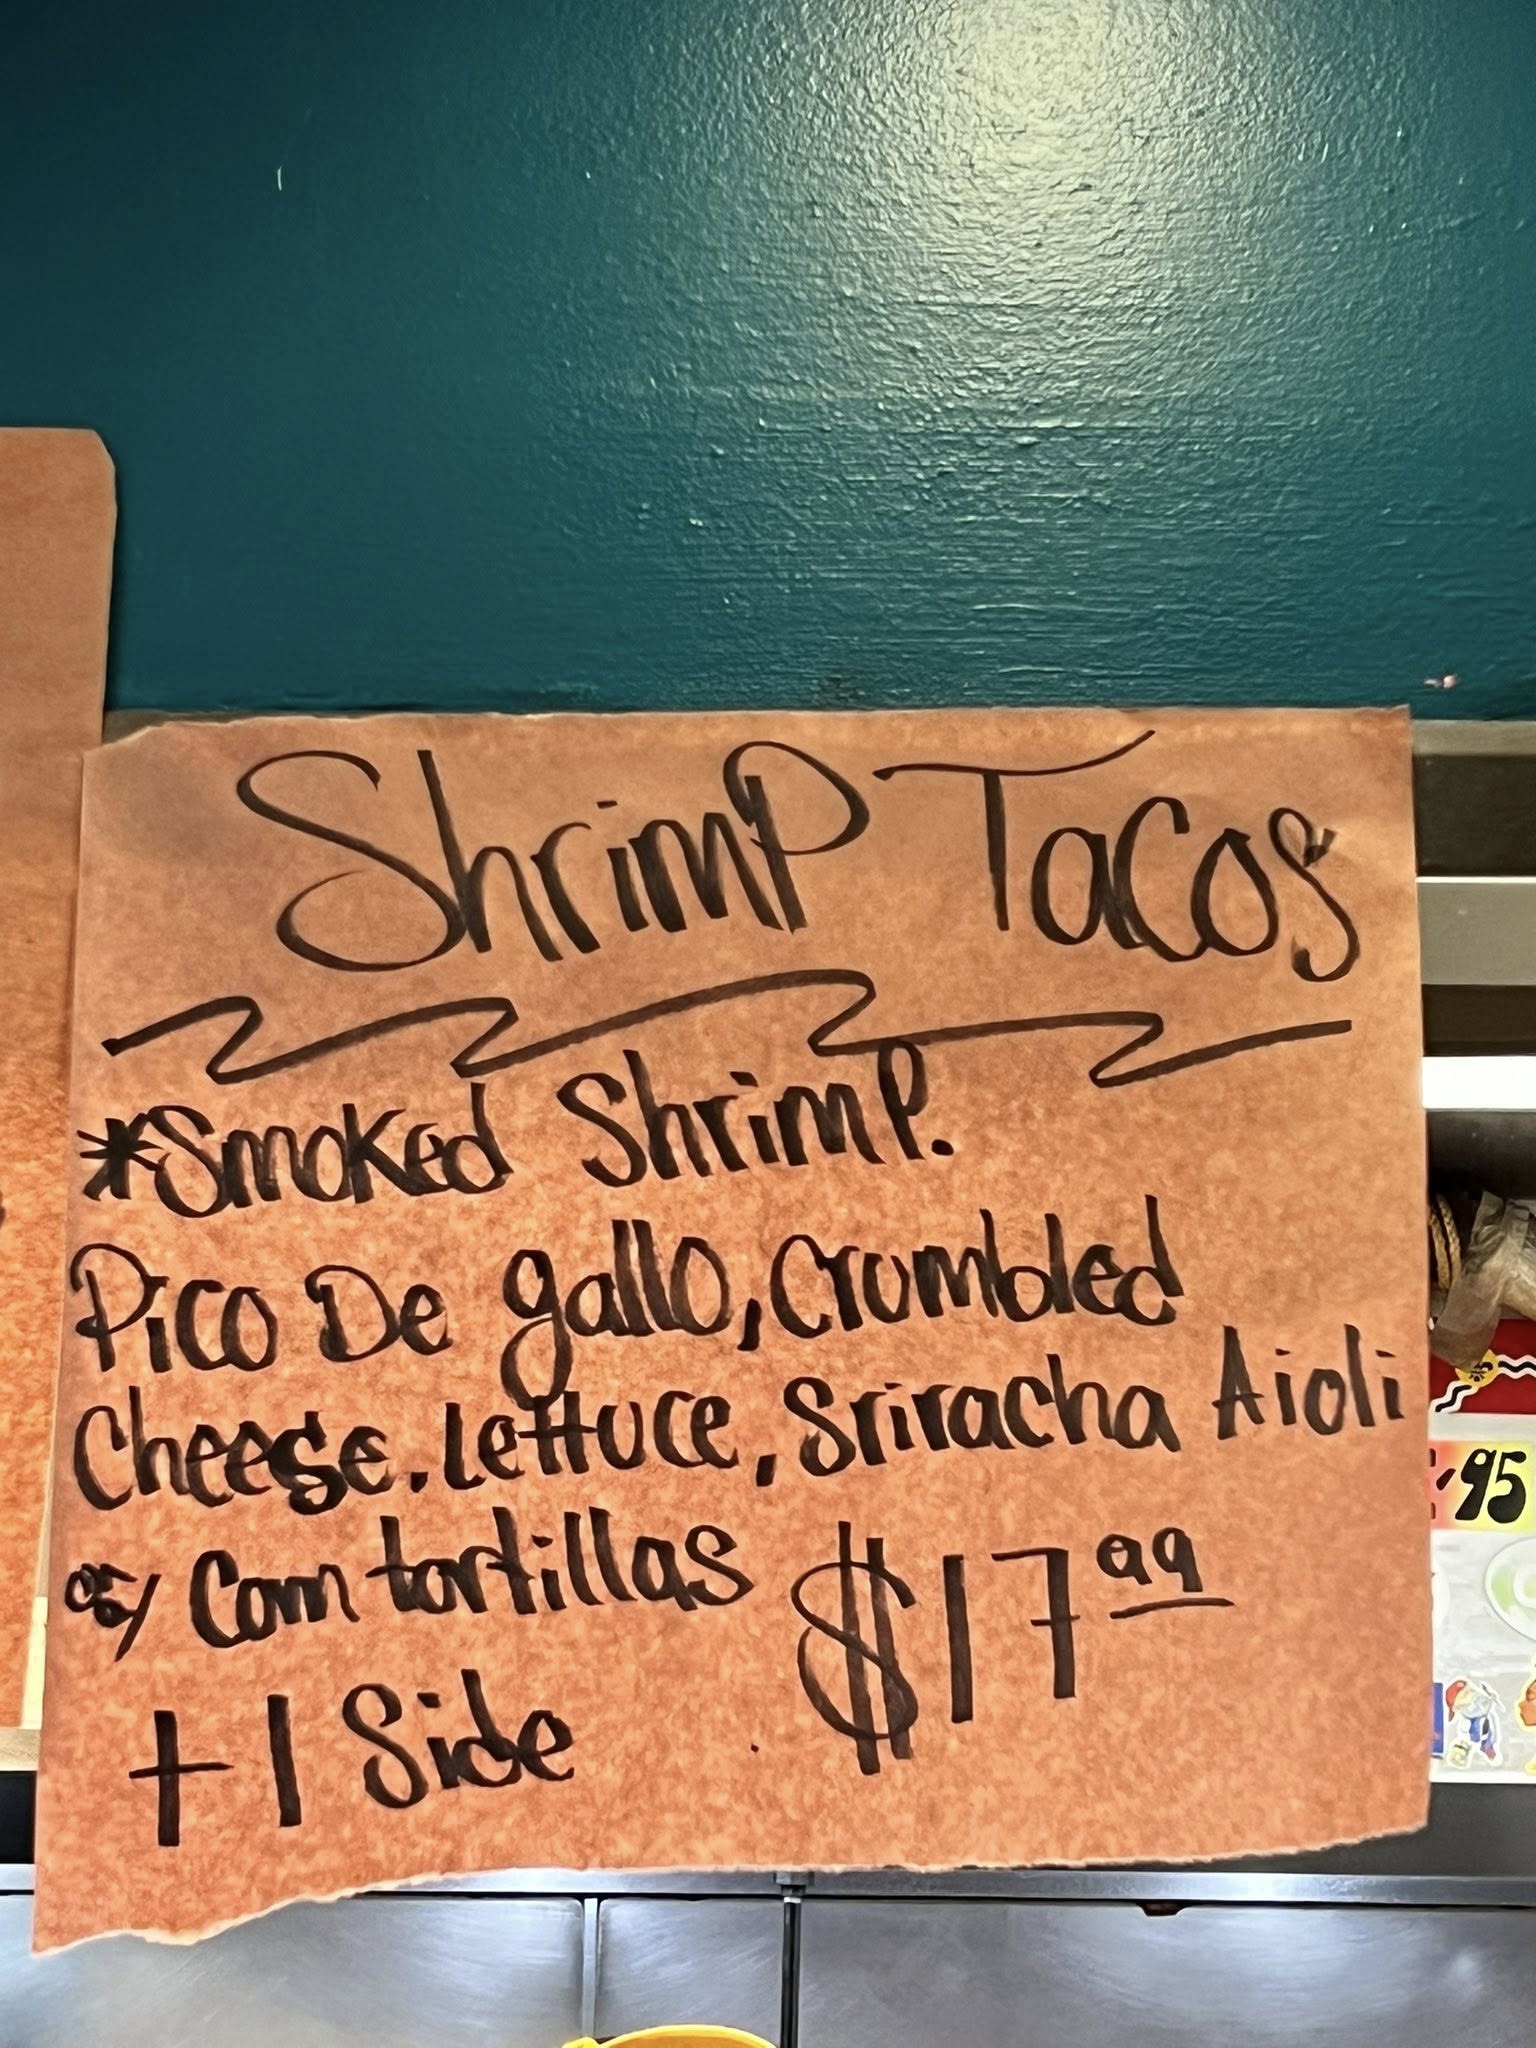 ShrimP Tacos
*Smoked ShrimP.
Pico De gallo, Crumbled
Cheese. Lettuce, Sriracha Aioli
Corn tortillas $17.99
+ 1 Side
.95